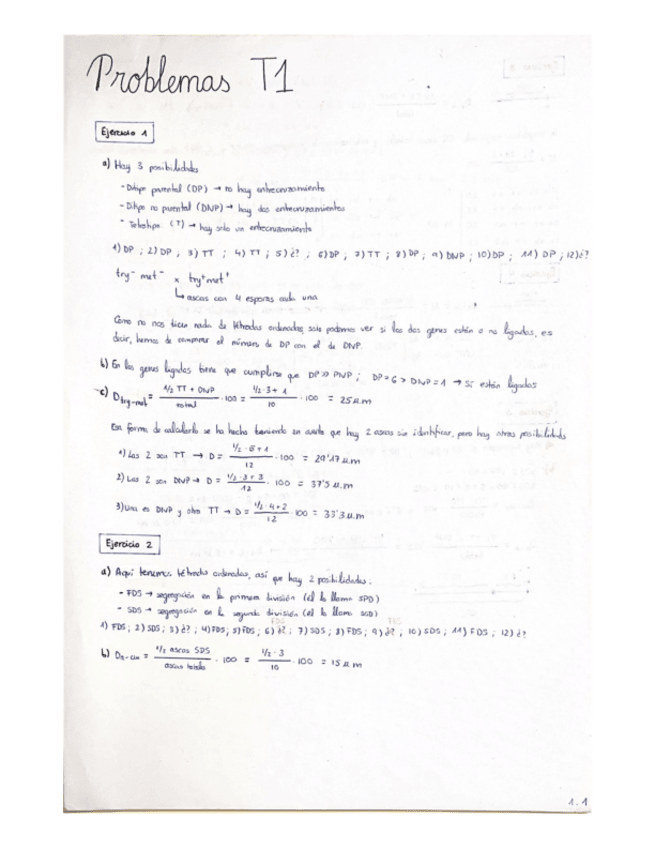 Problemas T1
Ejercicio 1
a) Hay 3 posibilidades
- Ditipo parental (DP) → no hay entrecruzamiento
- Ditipo no parental (DNP) → hay dos entrecruzamientos
- Tetratipo (T) → hay solo un entrecruzamiento
1) DP ; 2) DP ; 3) TT ; 4) TT ; 5) ¿? ; 6) DP ; 7) TT ; 8) DP ; 9) DNP ; 10) DP ; 11) DP ; 12) ¿?
try⁻ met⁻ x try⁺ met⁺
↳ ascas con 4 esporas cada una
Como no nos dicen nada de tétradas ordenadas, solo podemos ver si los dos genes están o no ligados, es
decir, hemos de comparar el número de DP con el de DNP.
b) En los genes ligados tiene que cumplirse que DP >> DNP ; DP = 6 > DNP = 1 → Sí están ligados
c) D try-met = 1/2 TT + DNP / total · 100 = 1/2 · 3 + 1 / 10 · 100 = 25 u.m
Esa forma de calcularlo se ha hecho teniendo en cuenta que hay 2 ascas sin identificar, pero hay otras posibilidades
1) Las 2 son TT → D = 1/2 · 5 + 1 / 12 · 100 = 29'17 u.m
2) Las 2 son DNP → D = 1/2 · 3 + 3 / 12 · 100 = 37'5 u.m
3) Una es DNP y otra TT → D = 1/2 · 4 + 2 / 12 · 100 = 33'3 u.m
Ejercicio 2
a) Aquí tenemos tétradas ordenadas, así que hay 2 posibilidades:
- FDS → segregación en la primera división (él lo llama SPD)
- SDS → segregación en la segunda división (él lo llama SSD)
1) FDS ; 2) SDS ; 3) ¿? ; 4) FDS ; 5) FDS ; 6) ¿? ; 7) SDS ; 8) FDS ; 9) ¿? ; 10) SDS ; 11) FDS ; 12) ¿?
b) = 1/2 ascas SDS / ascas totales · 100 = 1/2 · 3 / 10 · 100 = 15 u.m
1.1